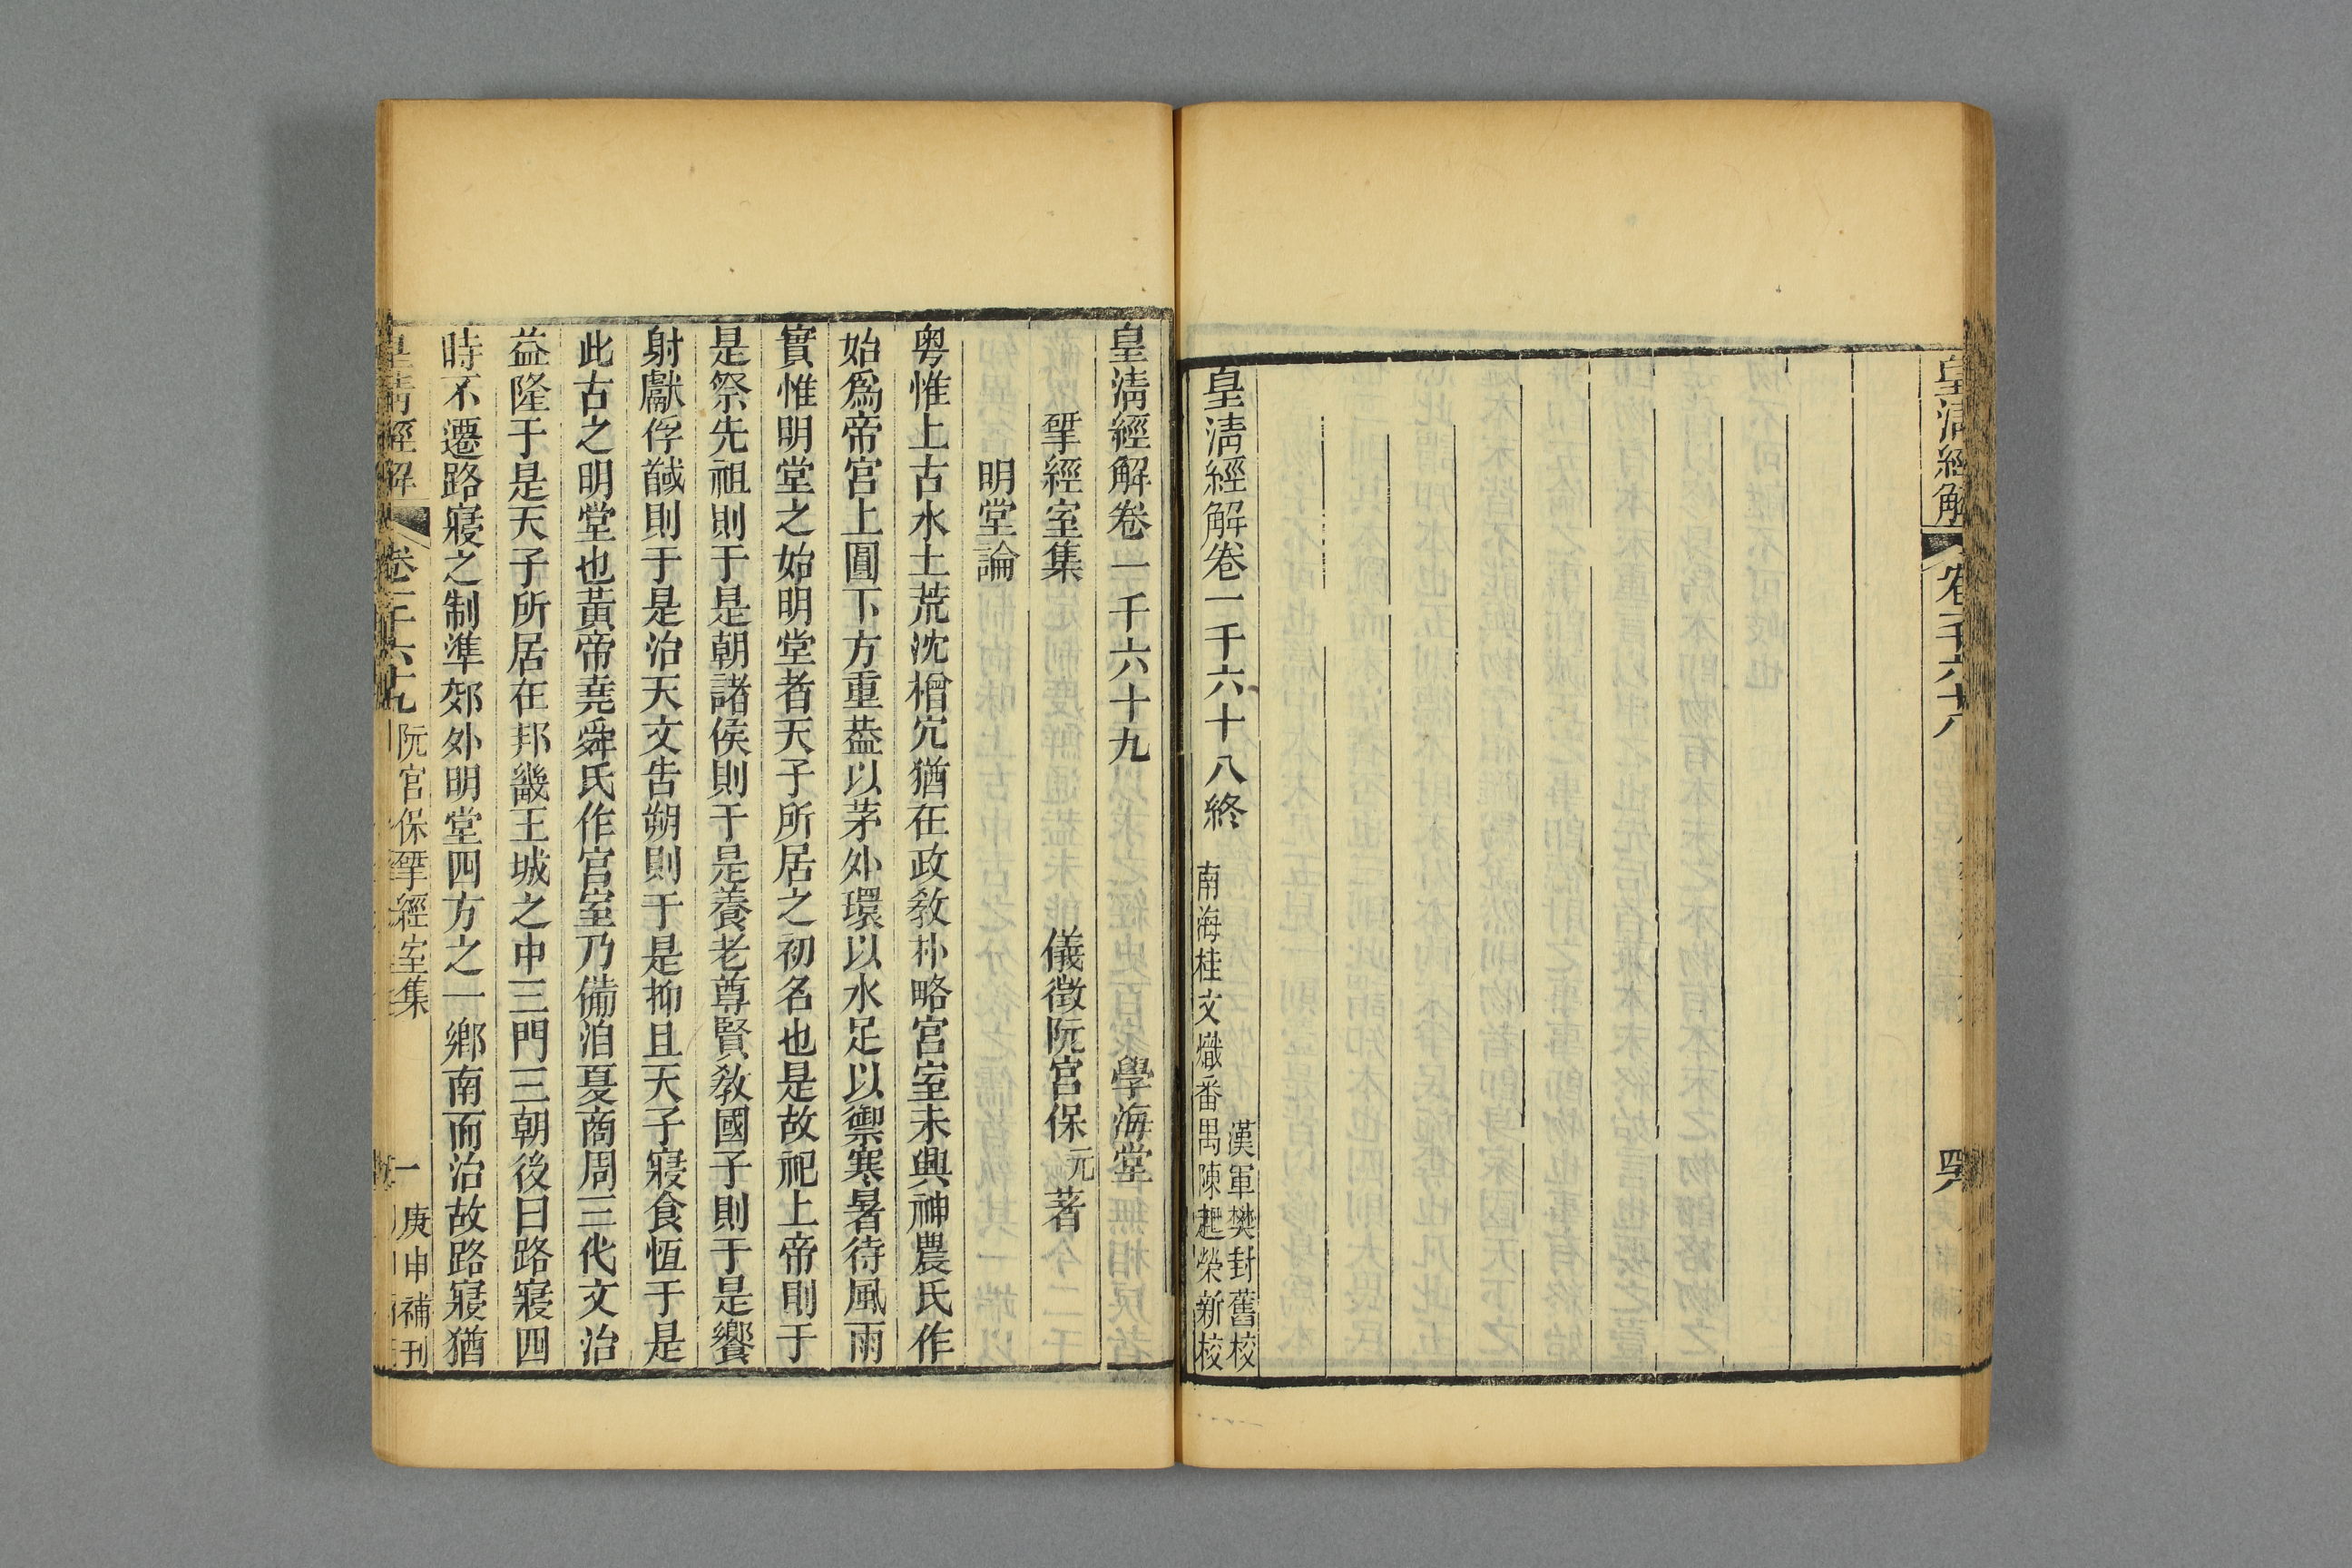 皇清經解
卷一千六十八
皇清經解卷一千六十八終
漢軍樊封舊校
南海桂文熾番禺陳起榮新校
皇清經解卷一千六十九
學海堂
揅經室集
儀徵阮宮保元著
明堂論
粤惟上古水土荒沈橧穴猶在政敎朴略宮室未興神農氏作
始爲帝宮上圓下方重蓋以茅外環以水足以禦寒暑待風雨
實惟明堂之始明堂者天子所居之初名也是故祀上帝則于
是祭先祖則于是朝諸侯則于是養老尊賢敎國子則于是饗
射獻俘馘則于是治天文告朔則于是抑且天子寢食恆于是
此古之明堂也黃帝堯舜氏作宮室乃備洎夏商周三代文治
益隆于是天子所居在邦畿王城之中三門三朝後曰路寢四
時不遷路寢之制準郊外明堂四方之一鄉南而治故路寢猶
皇清經解
卷一千六十九
阮宮保揅經室集
一
庚申補刊